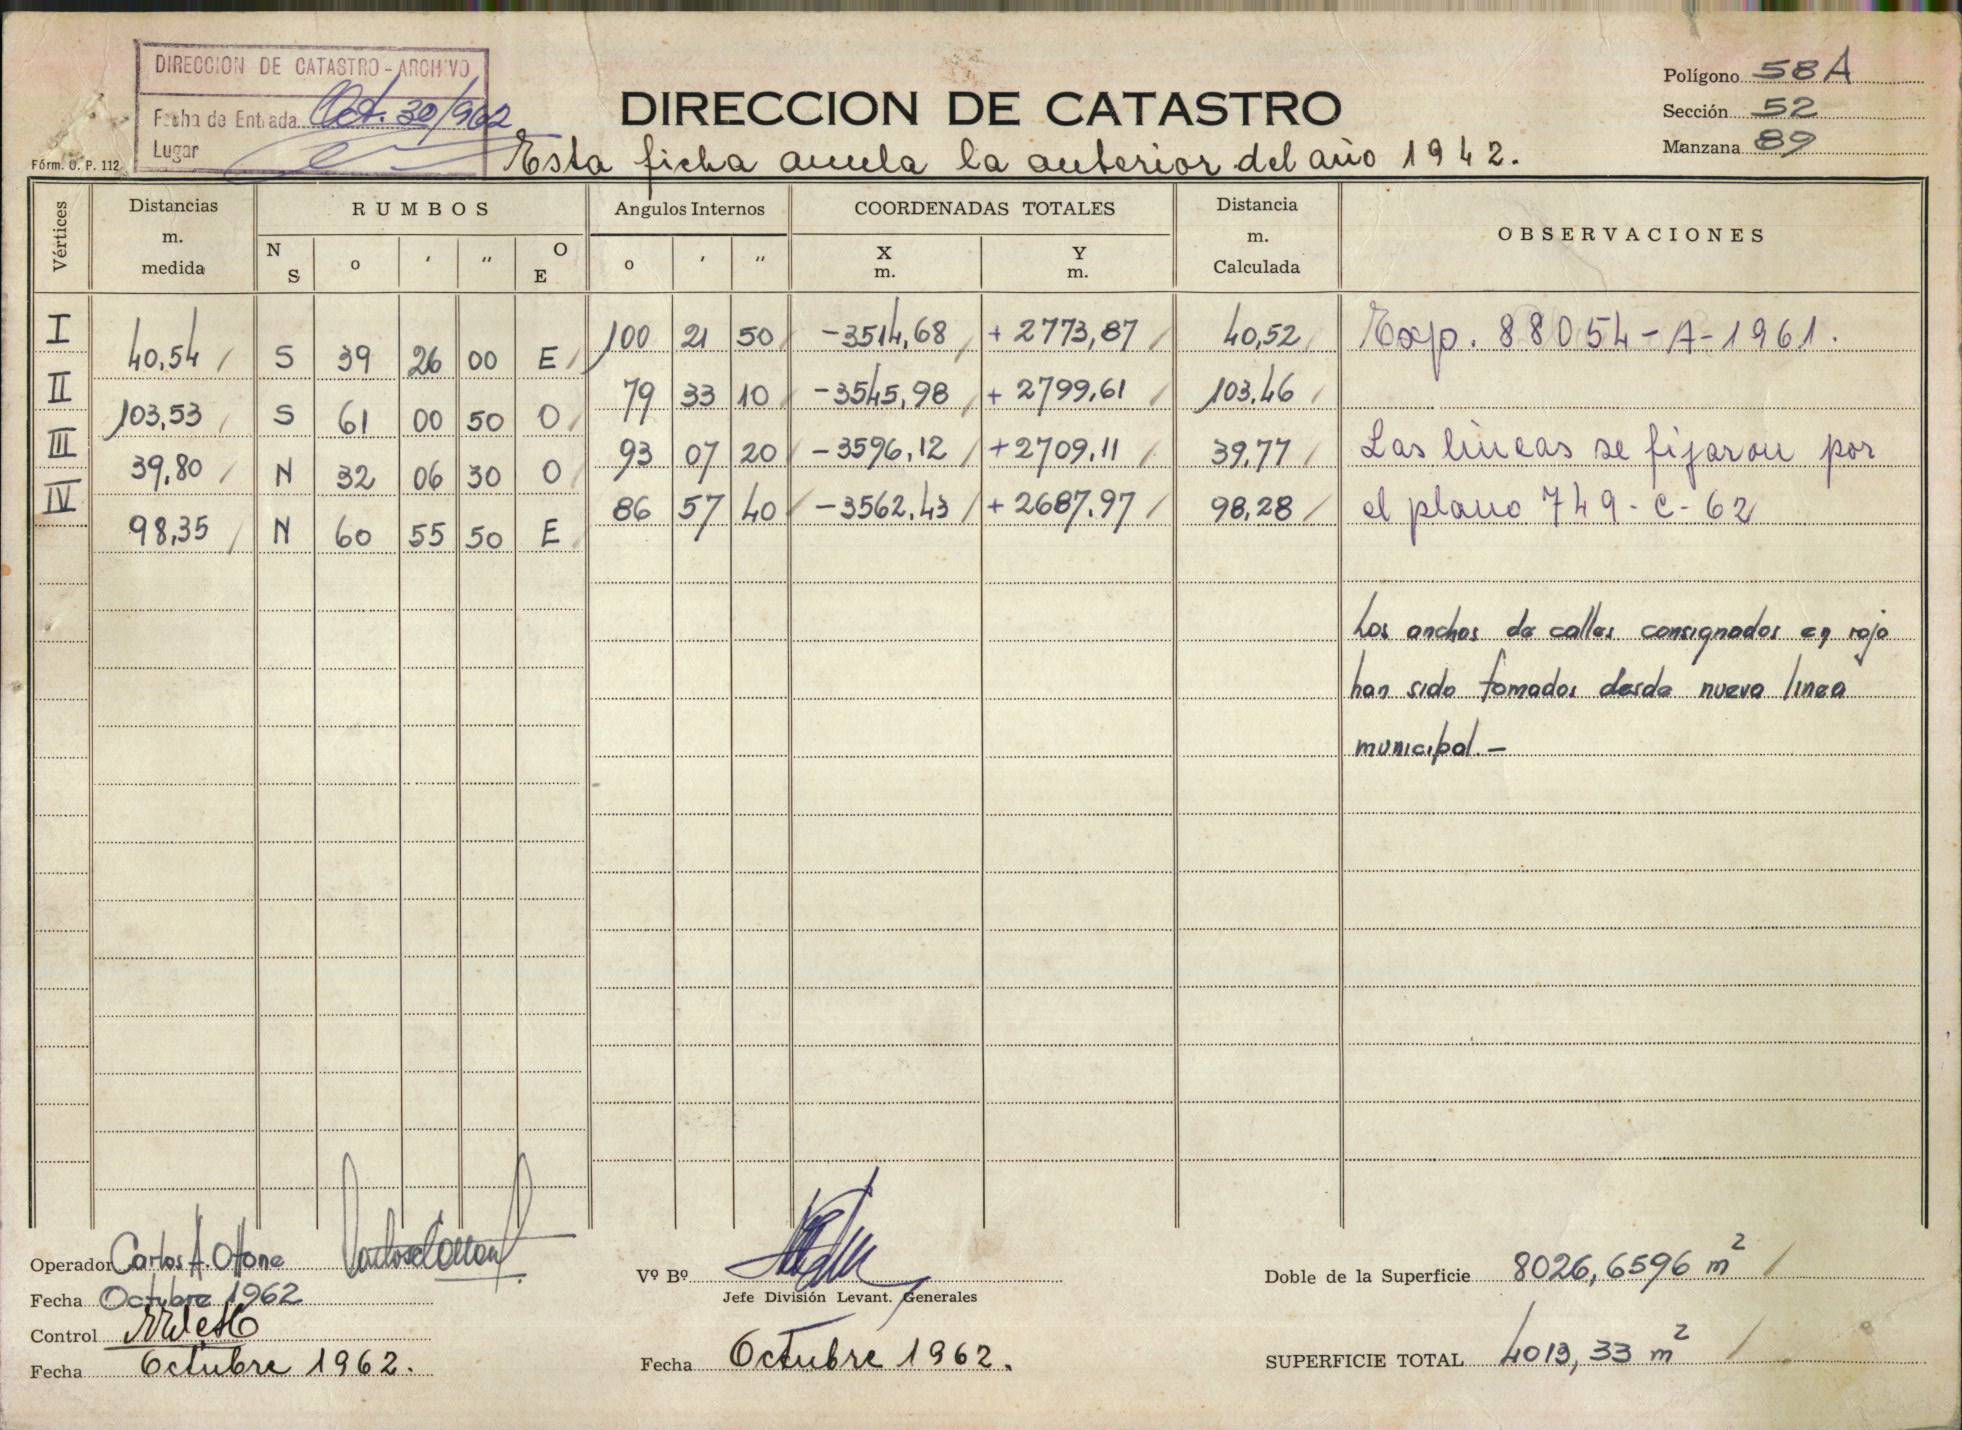 DIRECCION DE CATASTRO - ARCHIVO
Fecha de Entrada Oct. 30/962
Lugar
Fórm. O. P. 112
DIRECCION DE CATASTRO
Esta ficha anula la anterior del año 1942.
Polígono 58A
Sección 52
Manzana 89
Vértices
Distancias m. medida
RUMBOS
N S o ' " O E
Angulos Internos
o ' "
COORDENADAS TOTALES
X m. Y m.
Distancia m. Calculada
OBSERVACIONES
I 100 21 50 -3514,68 + 2773,87 40,52 Exp. 88054-A-1961.
40,54 S 39 26 00 E
II 79 33 10 -3545,98 + 2799,61 103,46
103,53 S 61 00 50 O
III 93 07 20 -3596,12 +2709,11 39,77 Las líneas se fijaron por
39,80 N 32 06 30 O
IV 86 57 40 -3562,43 + 2687,97 98,28 el plano 749-C-62
98,35 N 60 55 50 E
Los anchos de calles consignados en rojo
han sido tomados desde nueva linea
municipal.-
Operador Carlos A. Ottone
Fecha Octubre 1962
Control
Fecha Octubre 1962.
Vº Bº
Jefe División Levant. Generales
Fecha Octubre 1962.
Doble de la Superficie 8026,6596 m2
SUPERFICIE TOTAL 4013,33 m2